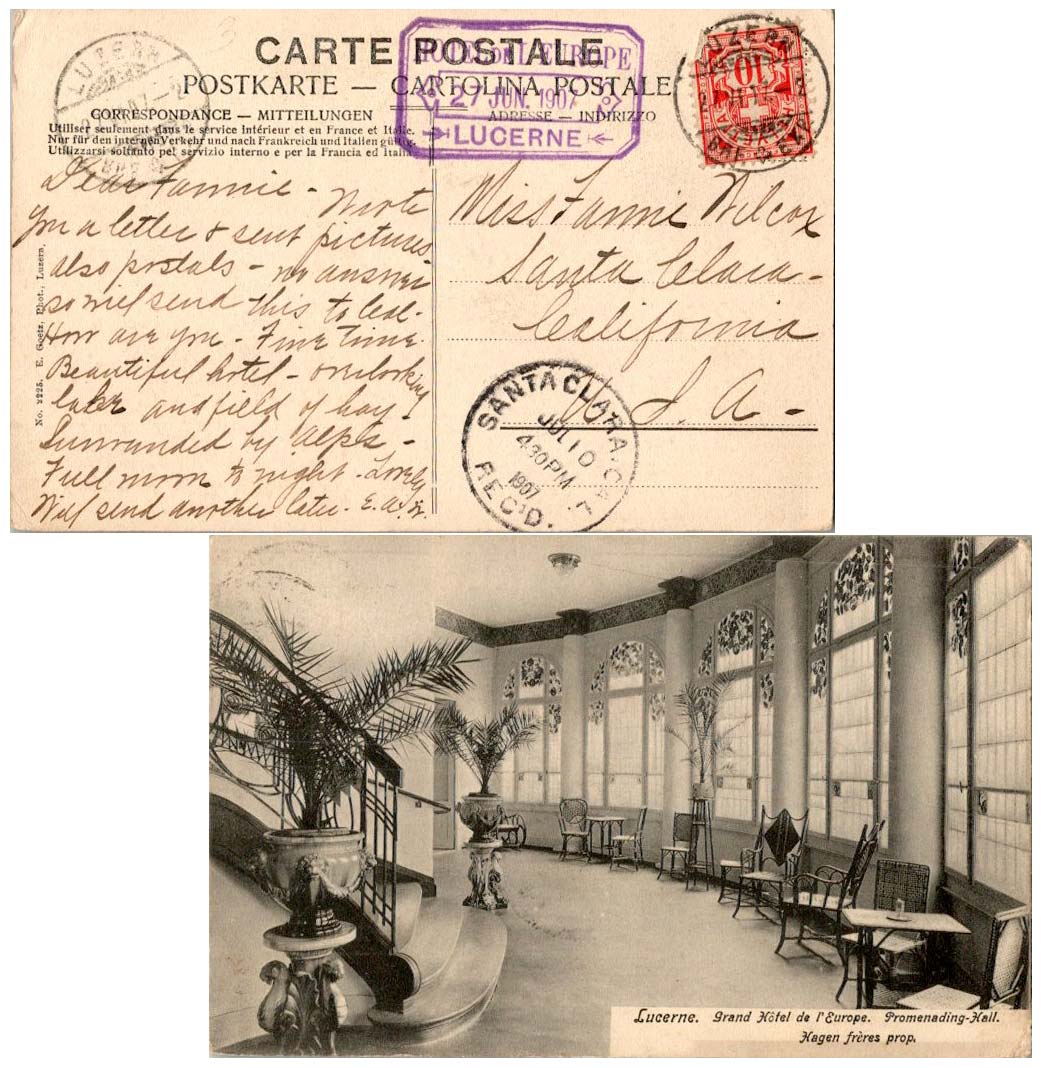 CARTE POSTALE
POSTKARTE — CARTOLINA POSTALE
CORRESPONDANCE — MITTEILUNGEN
ADRESSE — INDIRIZZO
Utiliser seulement dans le service intérieur et en France et Italie.
Nur für den internen Verkehr und nach Frankreich und Italien gültig.
Utilizzarsi soltanto pel servizio interno e per la Francia ed Italia.
HOTEL DE L'EUROPE
27 JUN. 1907
LUCERNE
LUZERN
LUZERN
10
Dear Fannie – Wrote
you a letter & sent pictures
also postals – no answer
so will send this to Cal.
How are you – Fine time.
Beautiful hotel – overlooking
lake and field of hay
Surrounded by Alps –
Full moon to night – Lovely
Will send another later – E. a. W.
No. 2225. E. Goetz, Phot., Luzern.
Miss Fannie Wilcox
Santa Clara –
California
U. S. A –
SANTA CLARA, CAL.
JUL 10
4:30 PM
1907
REC'D.
Lucerne. Grand Hôtel de l'Europe. Promenading-Hall.
Hagen frères prop.